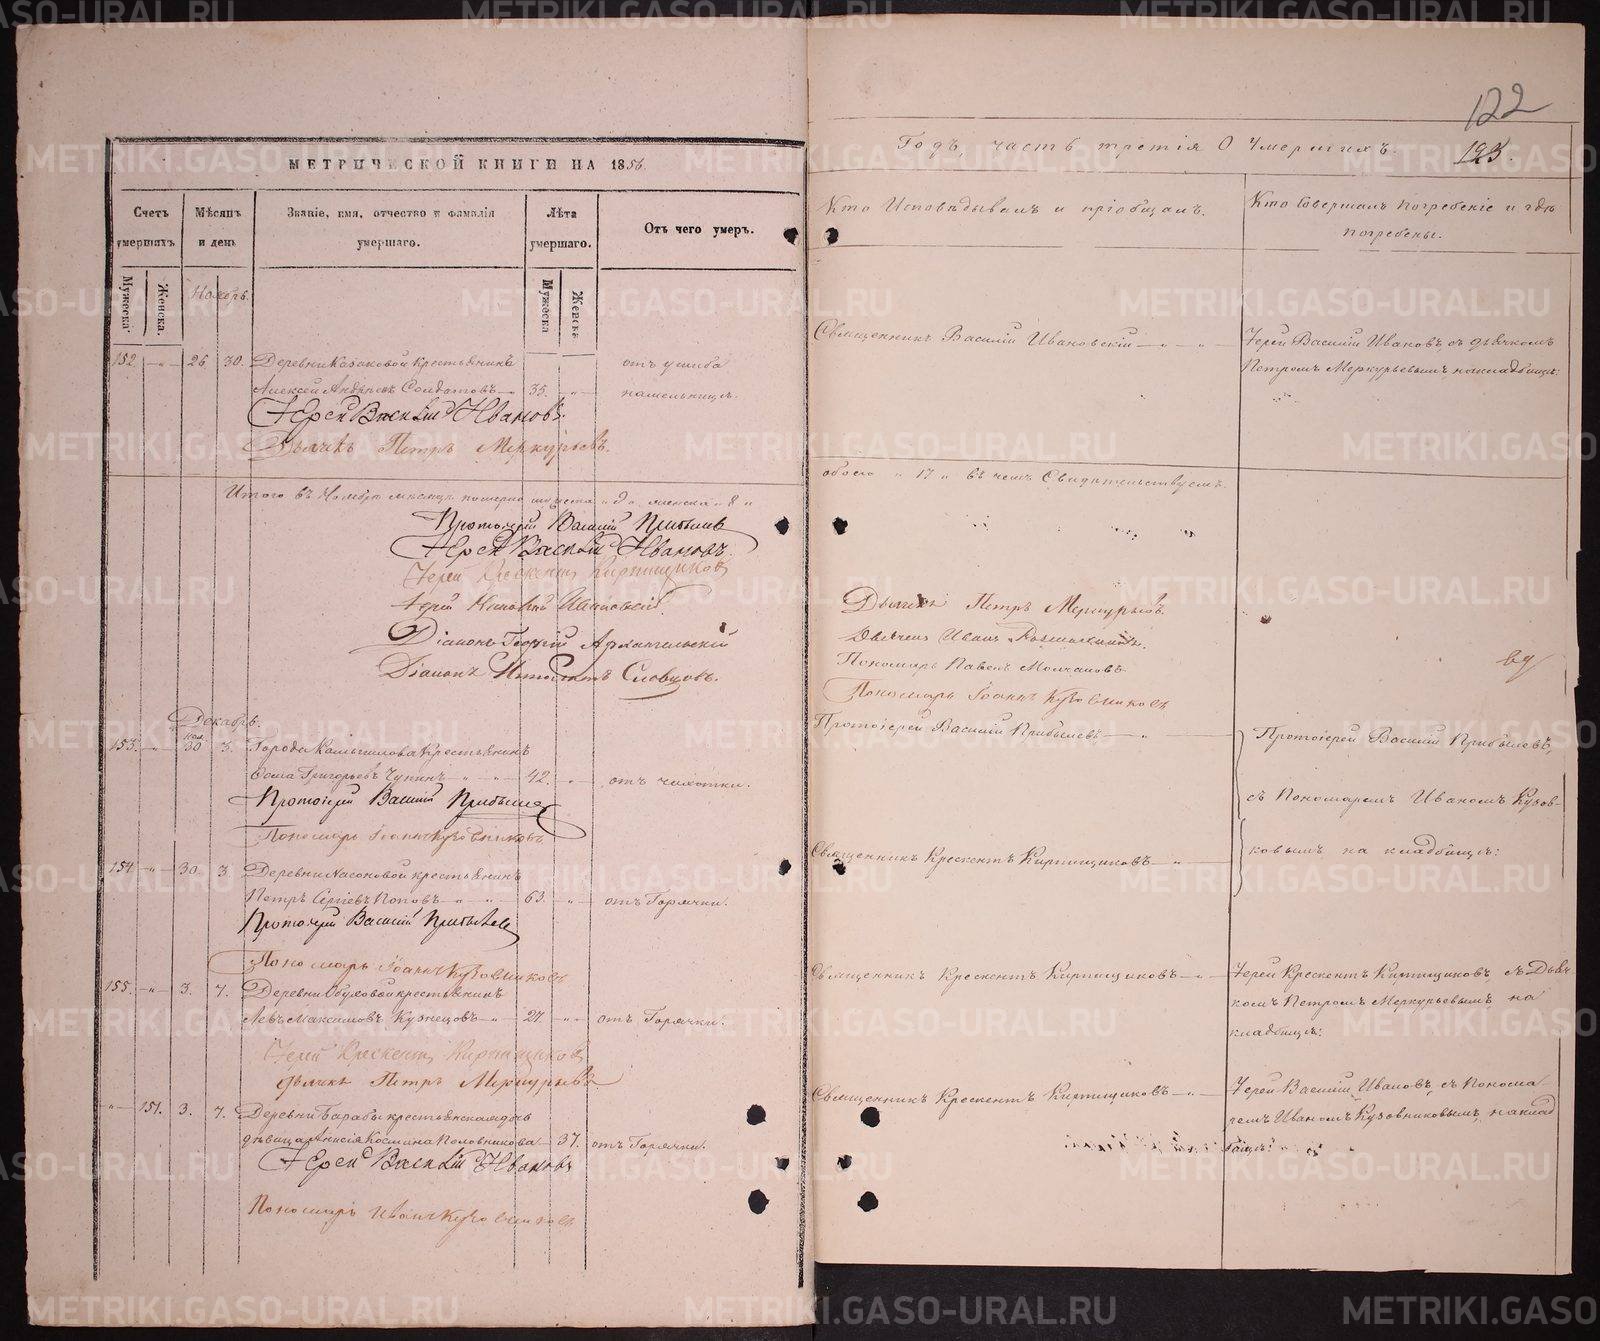 METRIKI.GASO-URAL.RU
МЕТРИЧЕСКОЙ КНИГИ НА 1856.
Счетъ умершихъ
Мѣсяцъ и день
Званіе, имя, отчество и фамилія умершаго.
Лѣта умершаго.
Отъ чего умеръ.
Мужеска.
Женска.
Мужеска
Женска
Ноябрь.
152 " 26 30. Деревни Казаковой Крестьянинъ отъ ушиба
Алексей Андреевъ Солдатовъ 35. " на мельнице.
Іерей Василій Ивановъ.
Дьячекъ Петръ Меркурьевъ.
Итого въ Ноябре месяце померло мужеска " 9 " женска " 8 "
Протоіерей Василій Прибылевъ
Іерей Василій Ивановъ.
Іерей Крескентъ Кирпищиковъ
Іерей Ивановскій.
Діаконъ Георгій Архангельскій
Діаконъ Словцовъ.
Декабрь.
153. " 30 3. Города Камышлова Крестьянинъ
Ѳома Григорьевъ Чупинъ " " 42. " отъ чахотки.
Протоіерей Василій Прибылевъ
Пономарь Іоаннъ Кузовниковъ
154 " 30 3. Деревни Насоновой крестьянинъ
Петръ Сергіевъ Поповъ " " 63. " отъ Горячки.
Протоіерей Василій Прибылевъ
Пономарь Іоаннъ Кузовниковъ
155. " 3. 7. Деревни Обуховой крестьянинъ
Левъ Максимовъ Кузнецовъ " 27. " отъ Горячки.
Іерей Крескентъ Кирпищиковъ
Дьячекъ Петръ Меркурьевъ
" 151. 3. 7. Деревни Барабы крестьянская дочь
девица Анисія Косьмина Половникова 37. отъ Горячки.
Іерей Василій Ивановъ
Пономарь Иванъ Кузовниковъ
122
123.
Годъ, часть третія О Умершихъ.
Кто Исповѣдывалъ и пріобщалъ.
Кто Совершалъ погребеніе и гдѣ погребены.
Священникъ Василій Ивановскій " "
Іерей Василій Ивановъ, съ дьячкомъ
Петромъ Меркурьевымъ на кладбище:
обоего " 17 " въ чемъ Свидѣтельствуемъ.
Дьячекъ Петръ Меркурьевъ.
Дьячекъ Иванъ
Пономарь Павелъ Молчановъ
Пономарь Іоаннъ Кузовниковъ
Протоіерей Василій Прибылевъ
Протоіерей Василій Прибылевъ,
съ Пономаремъ Иваномъ Кузов-
ковымъ на кладбище:
Священникъ Крескентъ Кирпищиковъ "
Священникъ Крескентъ Кирпищиковъ "
Іерей Крескентъ Кирпищиковъ, съ Дьяч
комъ Петромъ Меркурьевымъ, на
кладбище:
Священникъ Крескентъ Кирпищиковъ "
Іерей Василій Ивановъ, съ Понома-
ремъ Иваномъ Кузовниковымъ, на клад
бище: